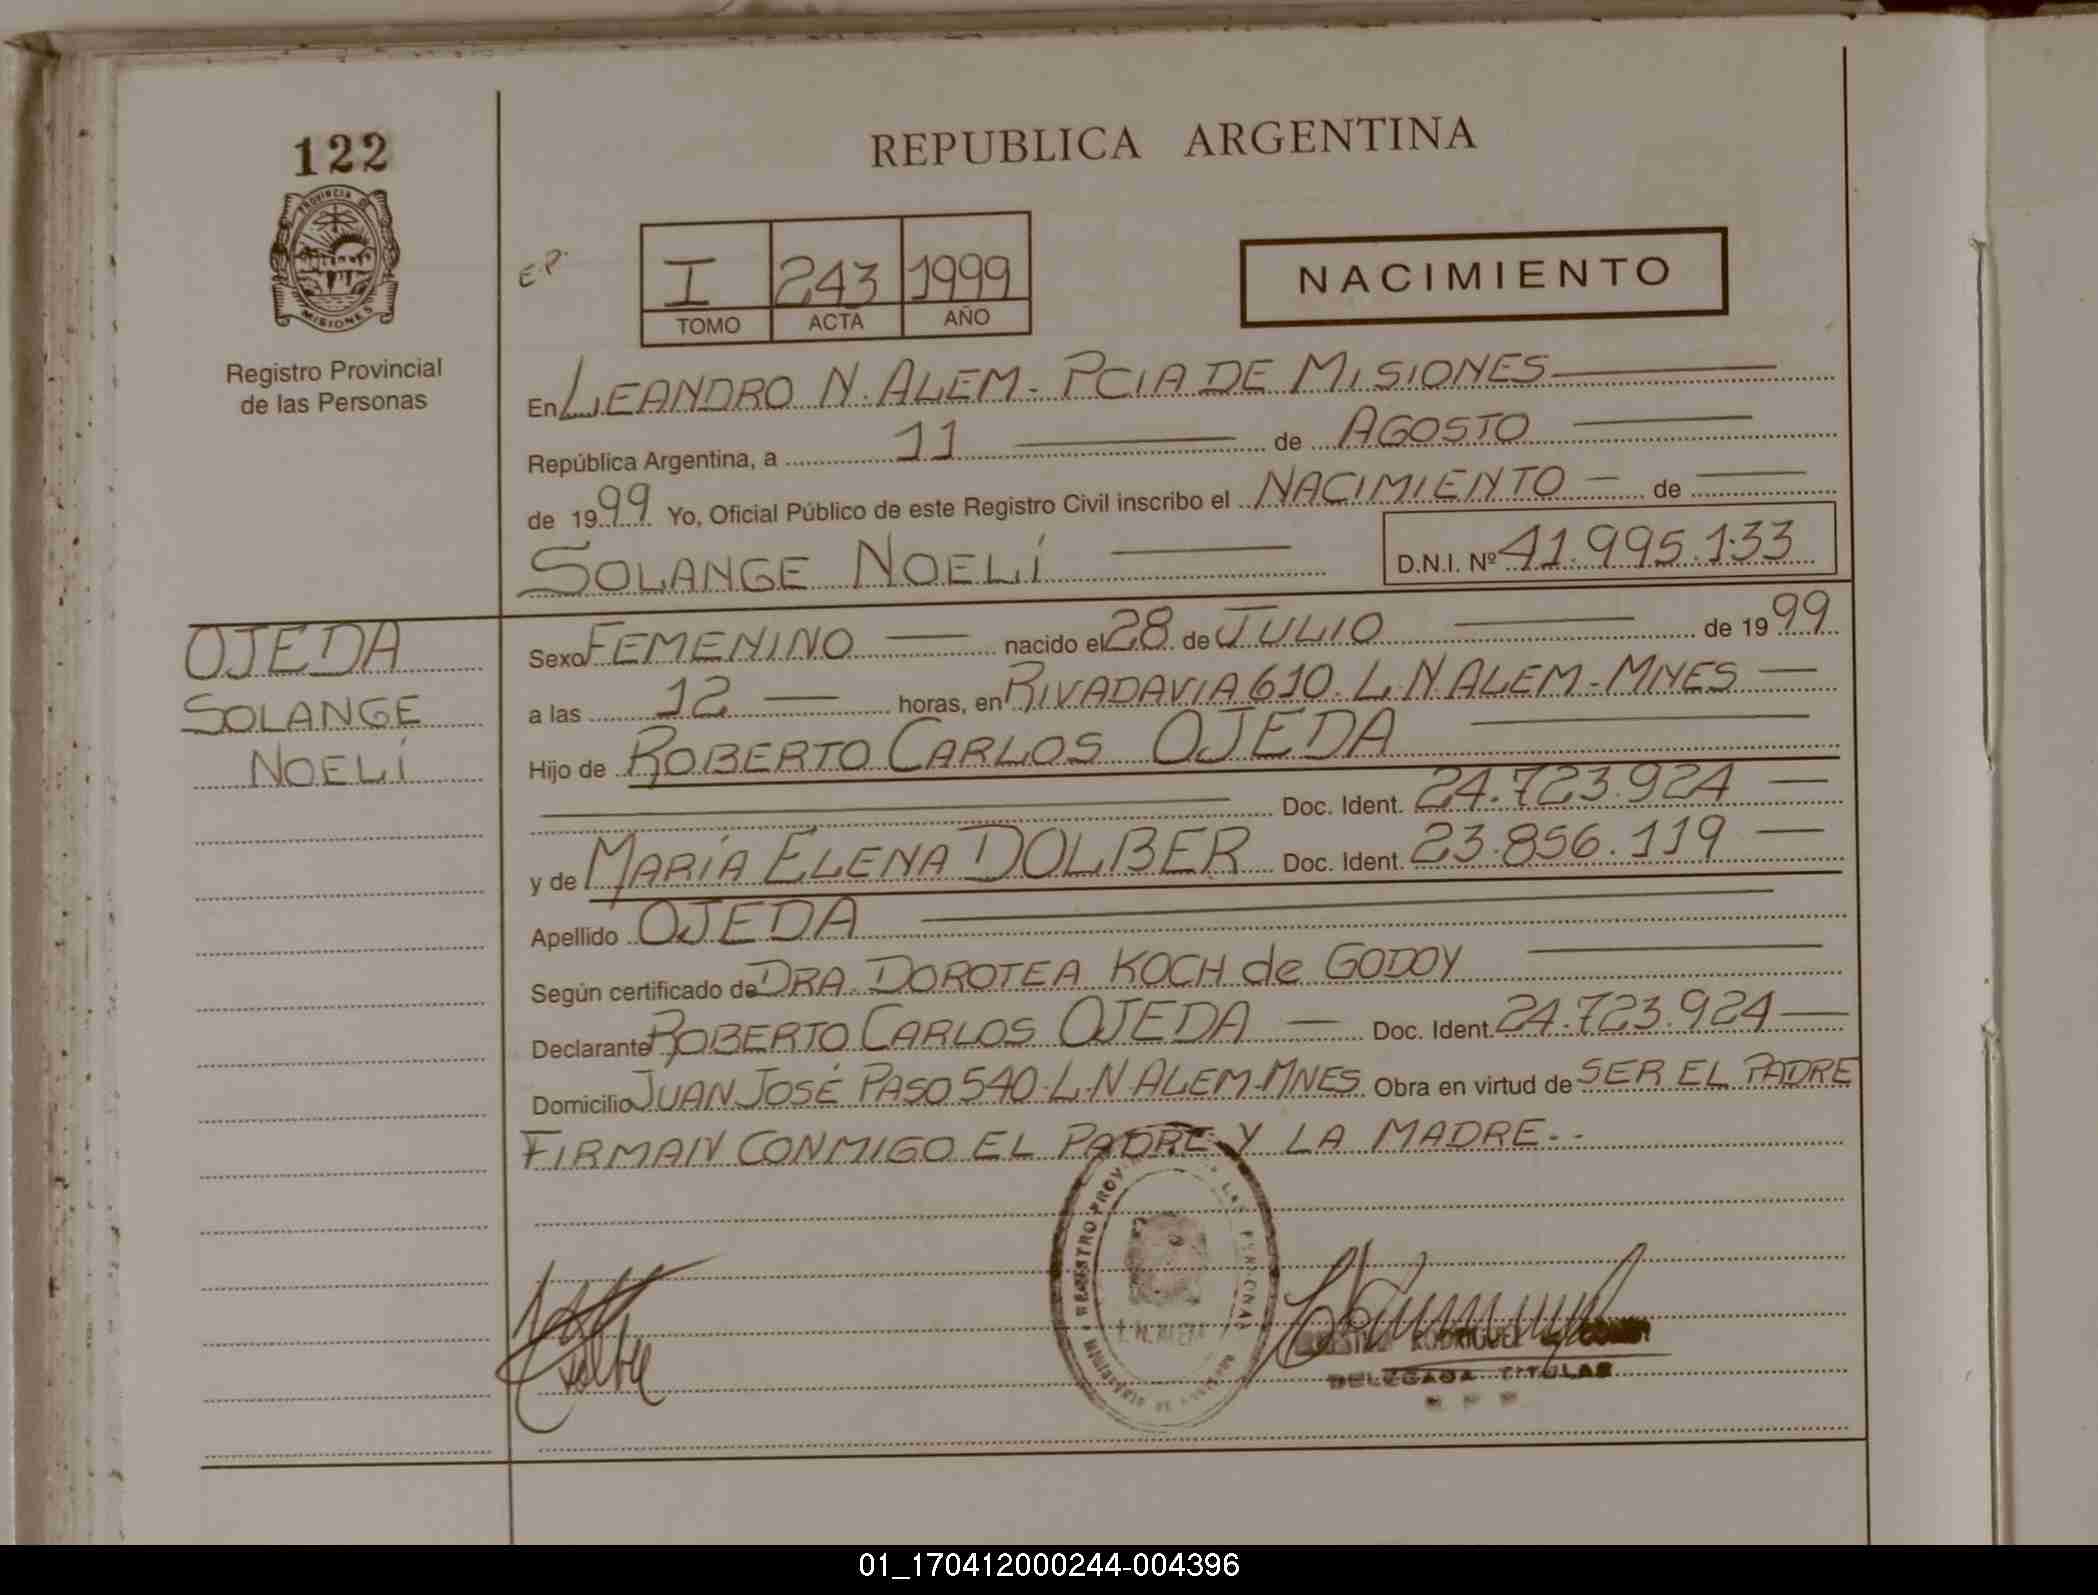 122
PROVINCIA DE
MISIONES
Registro Provincial
de las Personas
REPUBLICA ARGENTINA
E.P.
I 243 1999
TOMO ACTA AÑO
NACIMIENTO
En LEANDRO N. ALEM - PCIA DE MISIONES
República Argentina, a 11 de AGOSTO
de 1999 Yo, Oficial Público de este Registro Civil inscribo el NACIMIENTO de
SOLANGE NOELÍ D.N.I. Nº 41.995.133
OJEDA
SOLANGE
NOELÍ
Sexo FEMENINO nacido el 28 de JULIO de 1999
a las 12 horas, en RIVADAVIA 610. L.N. ALEM - MNES
Hijo de ROBERTO CARLOS OJEDA
Doc. Ident. 24.723.924
y de MARÍA ELENA DOLBER Doc. Ident. 23.856.119
Apellido OJEDA
Según certificado de DRA. DOROTEA KOCH de GODOY
Declarante ROBERTO CARLOS OJEDA Doc. Ident. 24.723.924
Domicilio JUAN JOSÉ PASO 540. L.N ALEM-MNES Obra en virtud de SER EL PADRE
FIRMAN CONMIGO EL PADRE Y LA MADRE.-
REGISTRO PROV LAS PERSONAS
L.N. ALEM
RODRIGUEZ
DELEGADA TITULAR
01_170412000244-004396